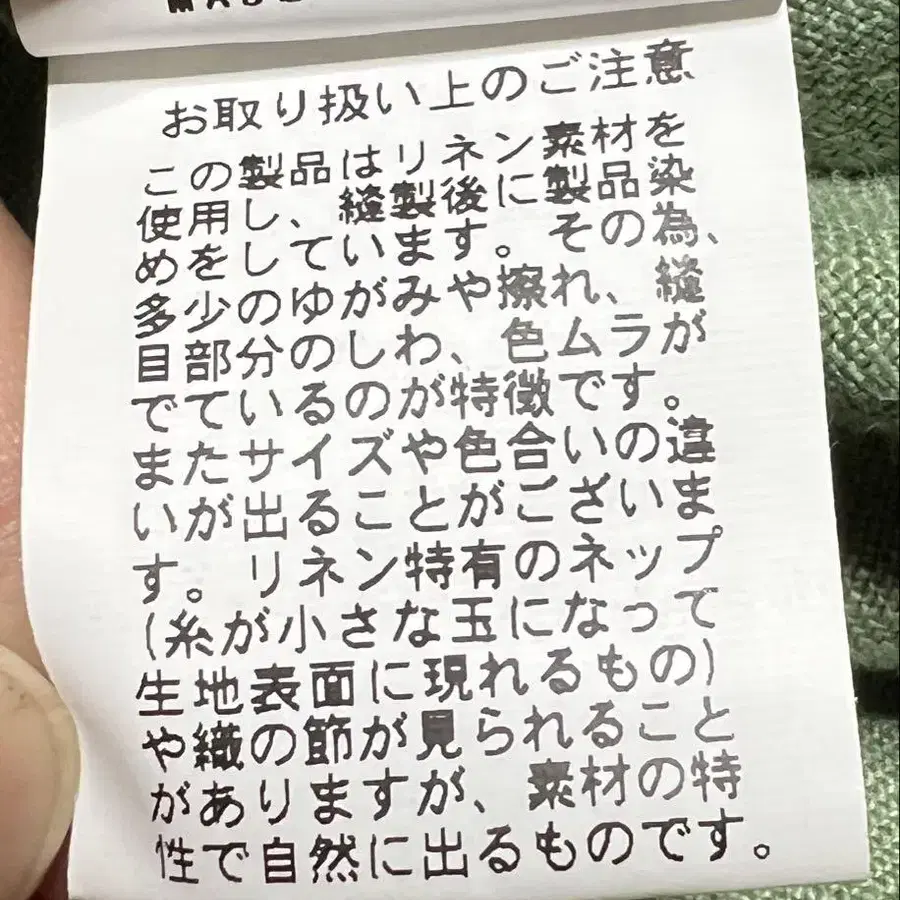 お取り扱い上のご注意
この製品はリネン素材を
使用し、縫製後に製品染
めをしています。その為、
多少のゆがみや擦れ、縫
目部分のしわ、色ムラが
でているのが特徴です。
またサイズや色合いの違
いが出ることがございま
す。リネン特有のネップ
(糸が小さな玉になって
生地表面に現れるもの)
や織の節が見られること
がありますが、素材の特
性で自然に出るものです。